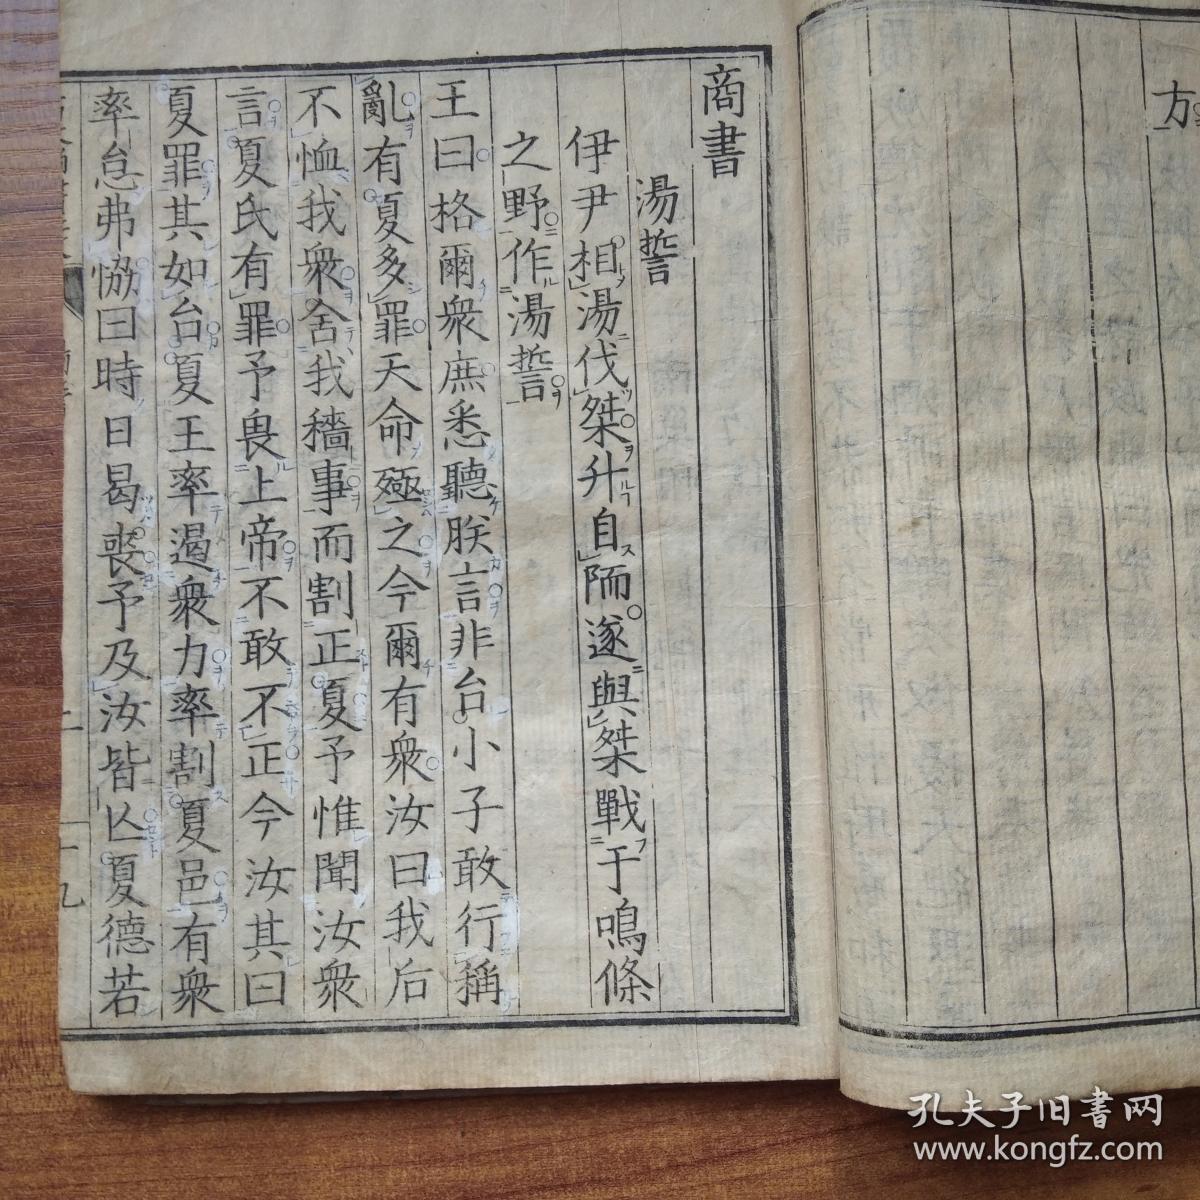 方
商書
湯誓
伊尹相湯伐桀升自陑遂與桀戰于鳴條
之野作湯誓
王曰格爾衆庶悉聽朕言非台小子敢行稱
亂有夏多罪天命殛之今爾有衆汝曰我后
不恤我衆舍我穡事而割正夏予惟聞汝衆
言夏氏有罪予畏上帝不敢不正今汝其曰
夏罪其如台夏王率遏衆力率割夏邑有衆
率怠弗恊曰時日曷喪予及汝皆亾夏德若
孔夫子旧书网
www.kongfz.com